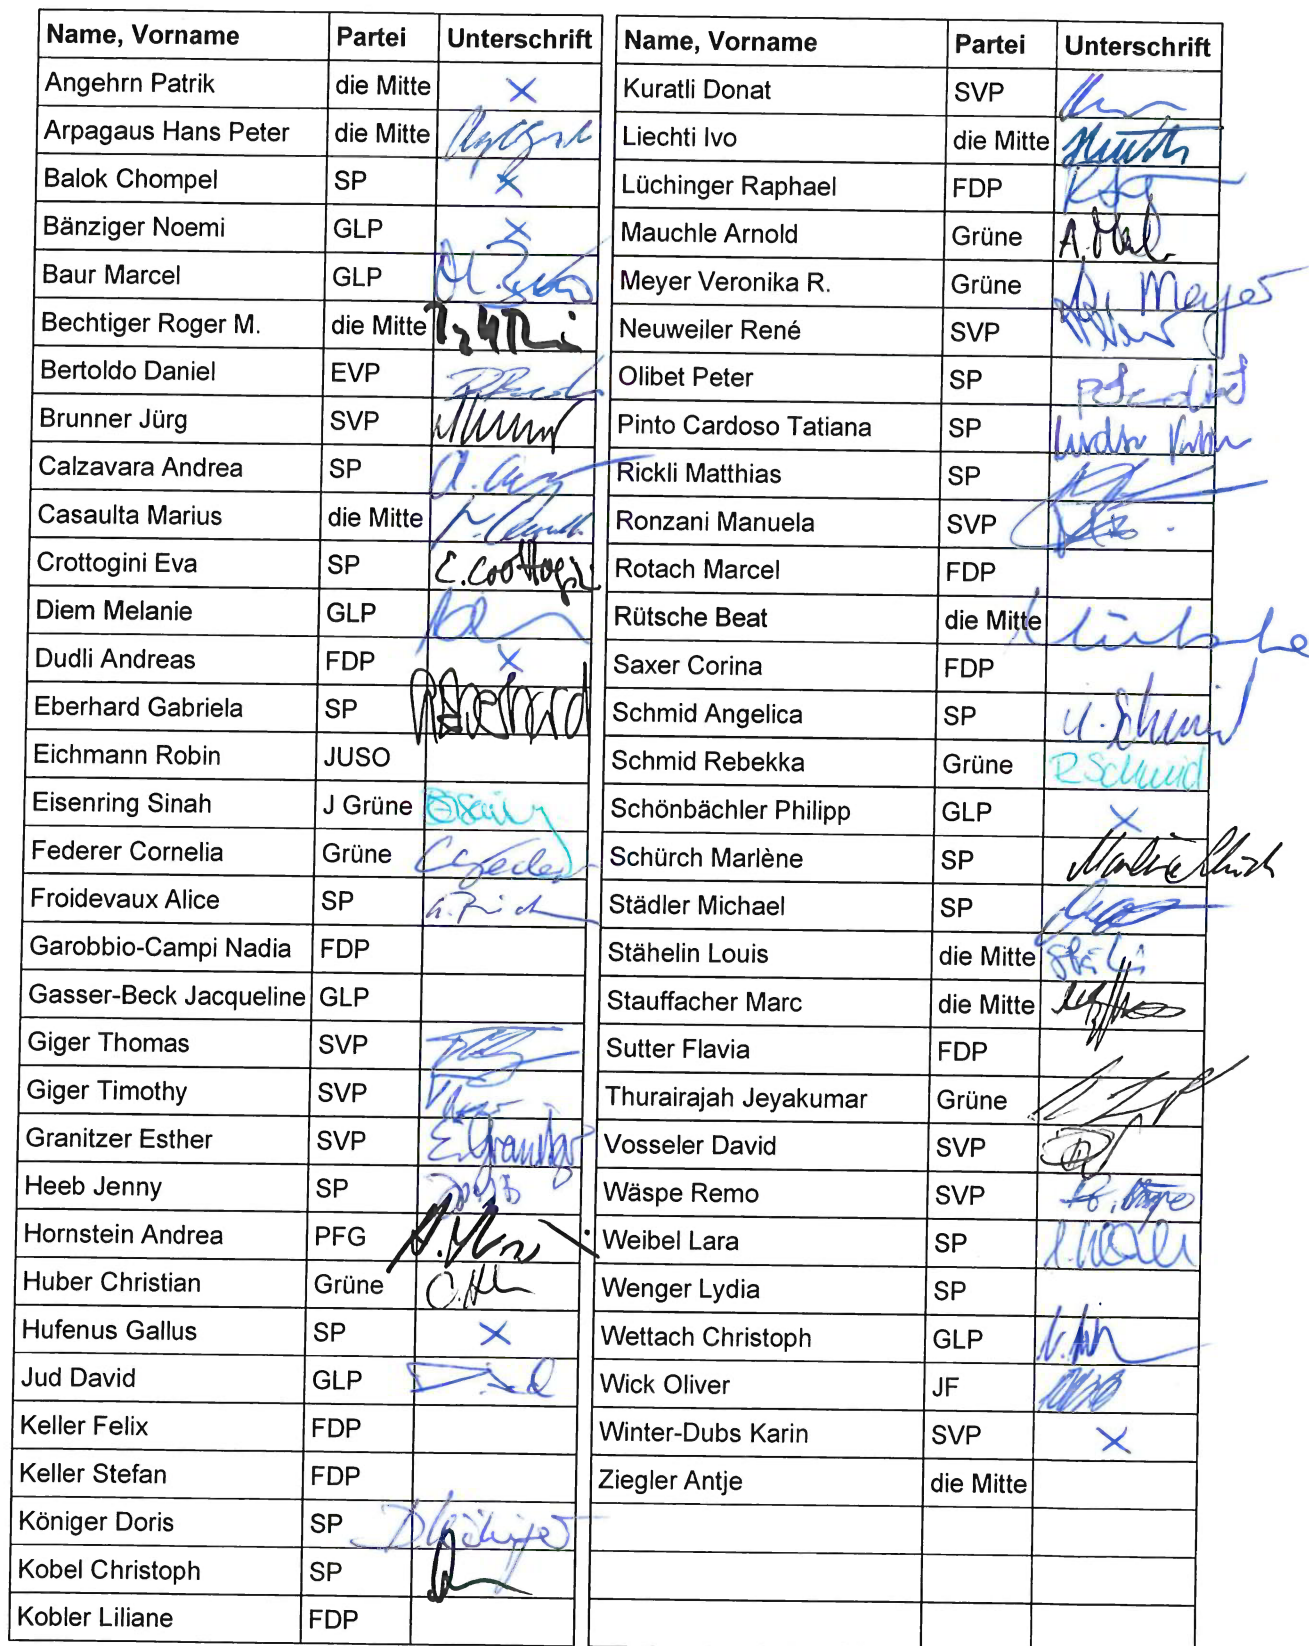 Name, Vorname Partei Unterschrift
Angehrn Patrik die Mitte X
Arpagaus Hans Peter die Mitte
Balok Chompel SP X
Bänziger Noemi GLP X
Baur Marcel GLP
Bechtiger Roger M. die Mitte
Bertoldo Daniel EVP
Brunner Jürg SVP
Calzavara Andrea SP
Casaulta Marius die Mitte
Crottogini Eva SP E. Crottogini
Diem Melanie GLP
Dudli Andreas FDP X
Eberhard Gabriela SP
Eichmann Robin JUSO
Eisenring Sinah J Grüne
Federer Cornelia Grüne
Froidevaux Alice SP
Garobbio-Campi Nadia FDP
Gasser-Beck Jacqueline GLP
Giger Thomas SVP
Giger Timothy SVP
Granitzer Esther SVP E. Granitzer
Heeb Jenny SP
Hornstein Andrea PFG
Huber Christian Grüne
Hufenus Gallus SP X
Jud David GLP
Keller Felix FDP
Keller Stefan FDP
Königer Doris SP D Königer
Kobel Christoph SP
Kobler Liliane FDP
Name, Vorname Partei Unterschrift
Kuratli Donat SVP
Liechti Ivo die Mitte
Lüchinger Raphael FDP
Mauchle Arnold Grüne
Meyer Veronika R. Grüne Meyer
Neuweiler René SVP
Olibet Peter SP
Pinto Cardoso Tatiana SP
Rickli Matthias SP
Ronzani Manuela SVP
Rotach Marcel FDP
Rütsche Beat die Mitte
Saxer Corina FDP
Schmid Angelica SP
Schmid Rebekka Grüne R Schmid
Schönbächler Philipp GLP X
Schürch Marlène SP
Städler Michael SP
Stähelin Louis die Mitte
Stauffacher Marc die Mitte
Sutter Flavia FDP
Thurairajah Jeyakumar Grüne
Vosseler David SVP
Wäspe Remo SVP
Weibel Lara SP
Wenger Lydia SP
Wettach Christoph GLP
Wick Oliver JF
Winter-Dubs Karin SVP X
Ziegler Antje die Mitte